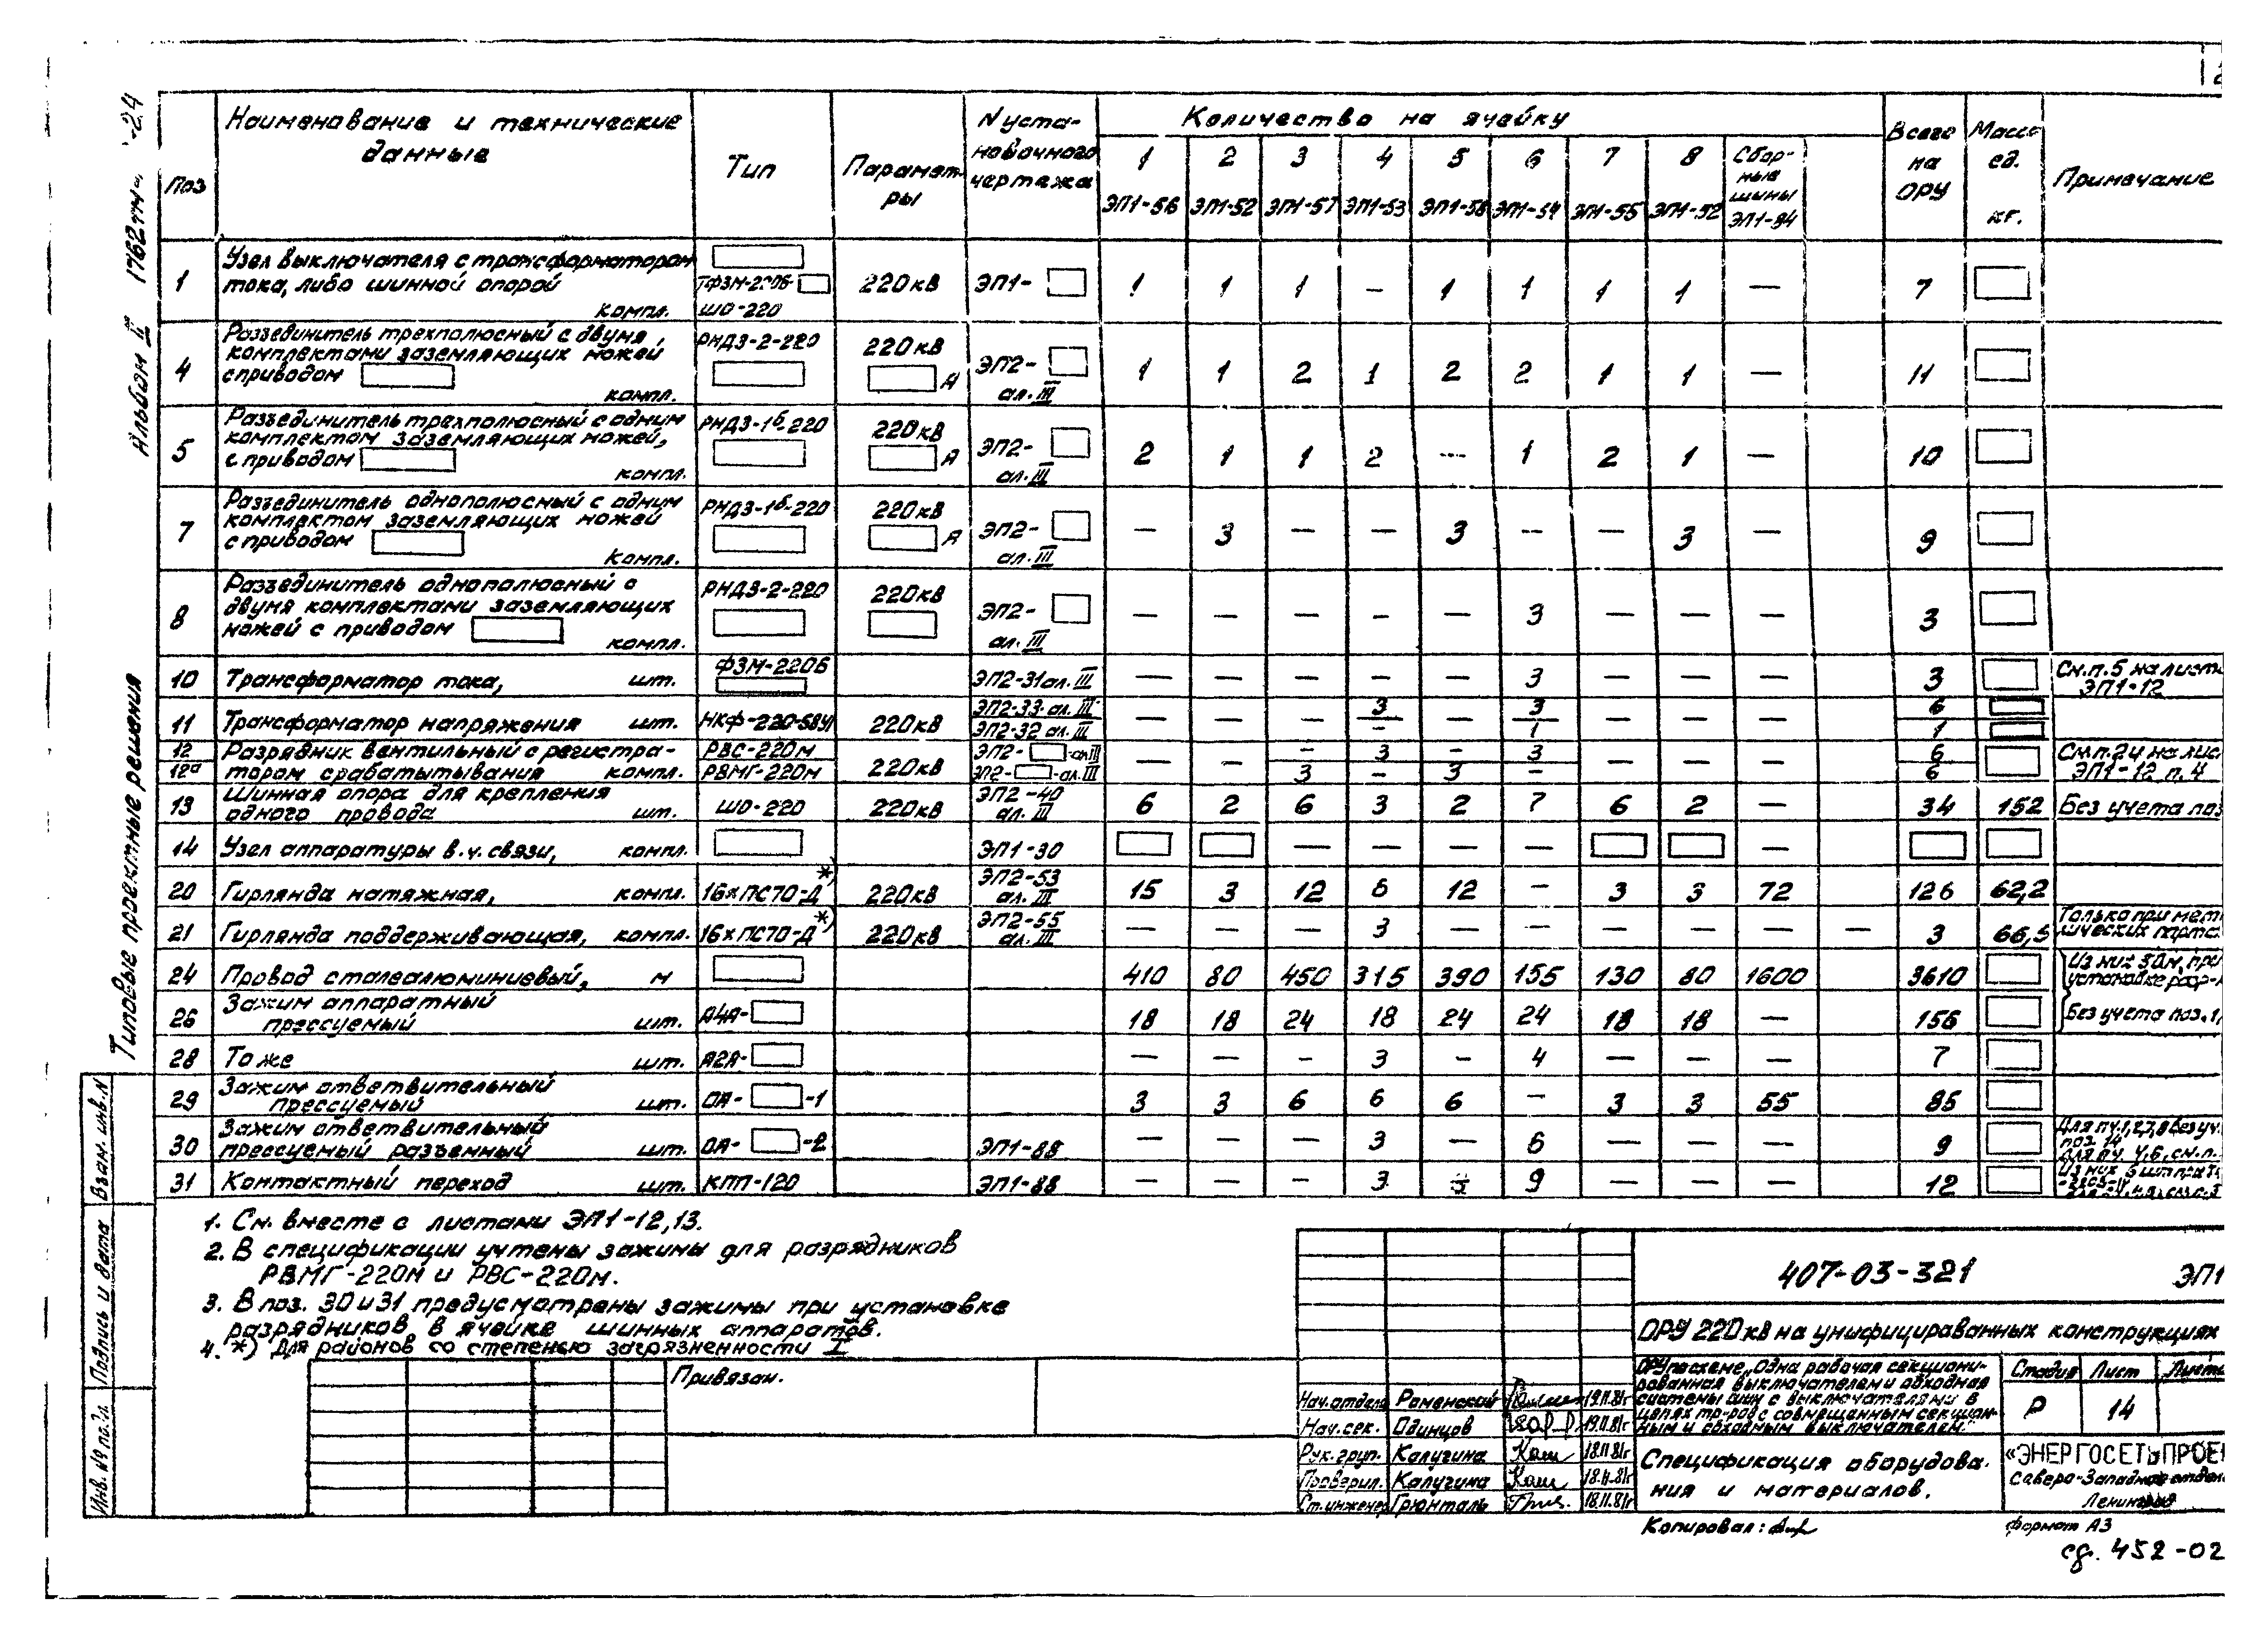 Альбом II 1762тм
Типовые проектные решения
Взам. инв. N
Подпись и дата
Инв. № подл.
Поз
Наименование и технические данные
Тип
Параметры
N установочного чертежа
Количество на ячейку
1 2 3 4 5 6 7 8 Сборные шины ЭП1-94
ЭП1-56 ЭП1-52 ЭП1-57 ЭП1-53 ЭП1-58 ЭП1-54 ЭП1-55 ЭП1-52
Всего на ОРУ
Масса ед. кг.
Примечание
1 Узел выключателя с трансформатором тока, либо шинной опорой компл. ТФЗМ-220Б- ШО-220 220кВ ЭП1- 1 1 1 — 1 1 1 1 — 7
4 Разъединитель трехполюсный с двумя комплектами заземляющих ножей с приводом компл. РНДЗ-2-220 220кВ А ЭП2- ал. III 1 1 2 1 2 2 1 1 — 11
5 Разъединитель трехполюсный с одним комплектом заземляющих ножей, с приводом компл. РНДЗ-1б-220 220кВ А ЭП2- ал. III 2 1 1 2 — 1 2 1 — 10
7 Разъединитель однополюсный с одним комплектом заземляющих ножей с приводом компл. РНДЗ-1б-220 220кВ А ЭП2- ал. III — 3 — — 3 — — 3 — 9
8 Разъединитель однополюсный с двумя комплектами заземляющих ножей с приводом компл. РНДЗ-2-220 220кВ ЭП2- ал. III — — — — — 3 — — — 3
10 Трансформатор тока, шт. ФЗМ-220Б ЭП2-31 ал. III — — — — — 3 — — — 3 См. п. 5 на листе ЭП1-12
11 Трансформатор напряжения шт. НКФ-220-58У1 220кВ ЭП2-33 ал. III — — — 3 — 3 — — — 6
ЭП2-32 ал. III — 1 1
12 Разрядник вентильный с регистра- РВС-220м ЭП2- -ал III — — — 3 — 3 — — — 6 См. п. 2 и на лис
12а тором срабатытывания компл. РВМГ-220м 220кВ ЭП2- -ал. III 3 — 3 — 6 ЭП1-12 п. 4
13 Шинная опора для крепления одного провода шт. ШО-220 220кВ ЭП2-40 ал. III 6 2 6 3 2 7 6 2 — 34 152 Без учета поз
14 Узел аппаратуры в.ч. связи, компл. ЭП1-30 — — — — —
20 Гирлянда натяжная, компл. 16хПС70-Д *) 220кВ ЭП2-53 ал. III 15 3 12 6 12 — 3 3 72 126 62,2
21 Гирлянда поддерживающая, компл. 16хПС70-Д *) 220кВ ЭП2-55 ал. III — — — 3 — — — — — — 3 66,5 Только при мет
24 Провод сталеалюминиевый, м 410 80 450 315 390 155 130 80 1600 3610 Из них 50м, при установке
26 Зажим аппаратный прессуемый шт. А4А- 18 18 24 18 24 24 18 18 — 156 Без учета поз. 1,
28 То же шт. А2А- — — — 3 — 4 — — — 7
29 Зажим ответвительный прессуемый шт. ОА- -1 3 3 6 6 6 — 3 3 55 85
30 Зажим ответвительный прессуемый разъемный шт. ОА- -2 ЭП1-88 — — — 3 — 6 — — — 9
31 Контактный переход шт. КПП-120 ЭП1-88 — — — 3 9 — — — 12
1. См. вместе с листами ЭП1-12,13.
2. В спецификации учтены зажимы для разрядников
РВМГ-220м и РВС-220м.
3. В поз. 30 и 31 предусмотрены зажимы при установке
разрядников в ячейке шинных аппаратов.
4. *) Для районов со степенью загрязненности I
Привязан.
407-03-321 ЭП1
ОРУ 220кВ на унифицированных конструкциях
ОРУ по схеме „Одна рабочая секциони-
рованная выключателем и обходная
системы шин с выключателями в
цепях тр-ров с совмещенным секцион-
ным и обходным выключателем."
Стадия Лист
Р 14
Спецификация оборудова-
ния и материалов.
«ЭНЕРГОСЕТЬПРОЕ
Северо-Западное отдел
Ленинград
Нач. отдела Роменский 19.11.81г
Нач. сек. Одинцов 19.11.81г
Рук. груп. Калугина 18.11.81г
Проверил. Калугина 18.11.81г
Ст. инженер Грюнталь 18.11.81г
Копировал:
формат А3
сф. 452-02